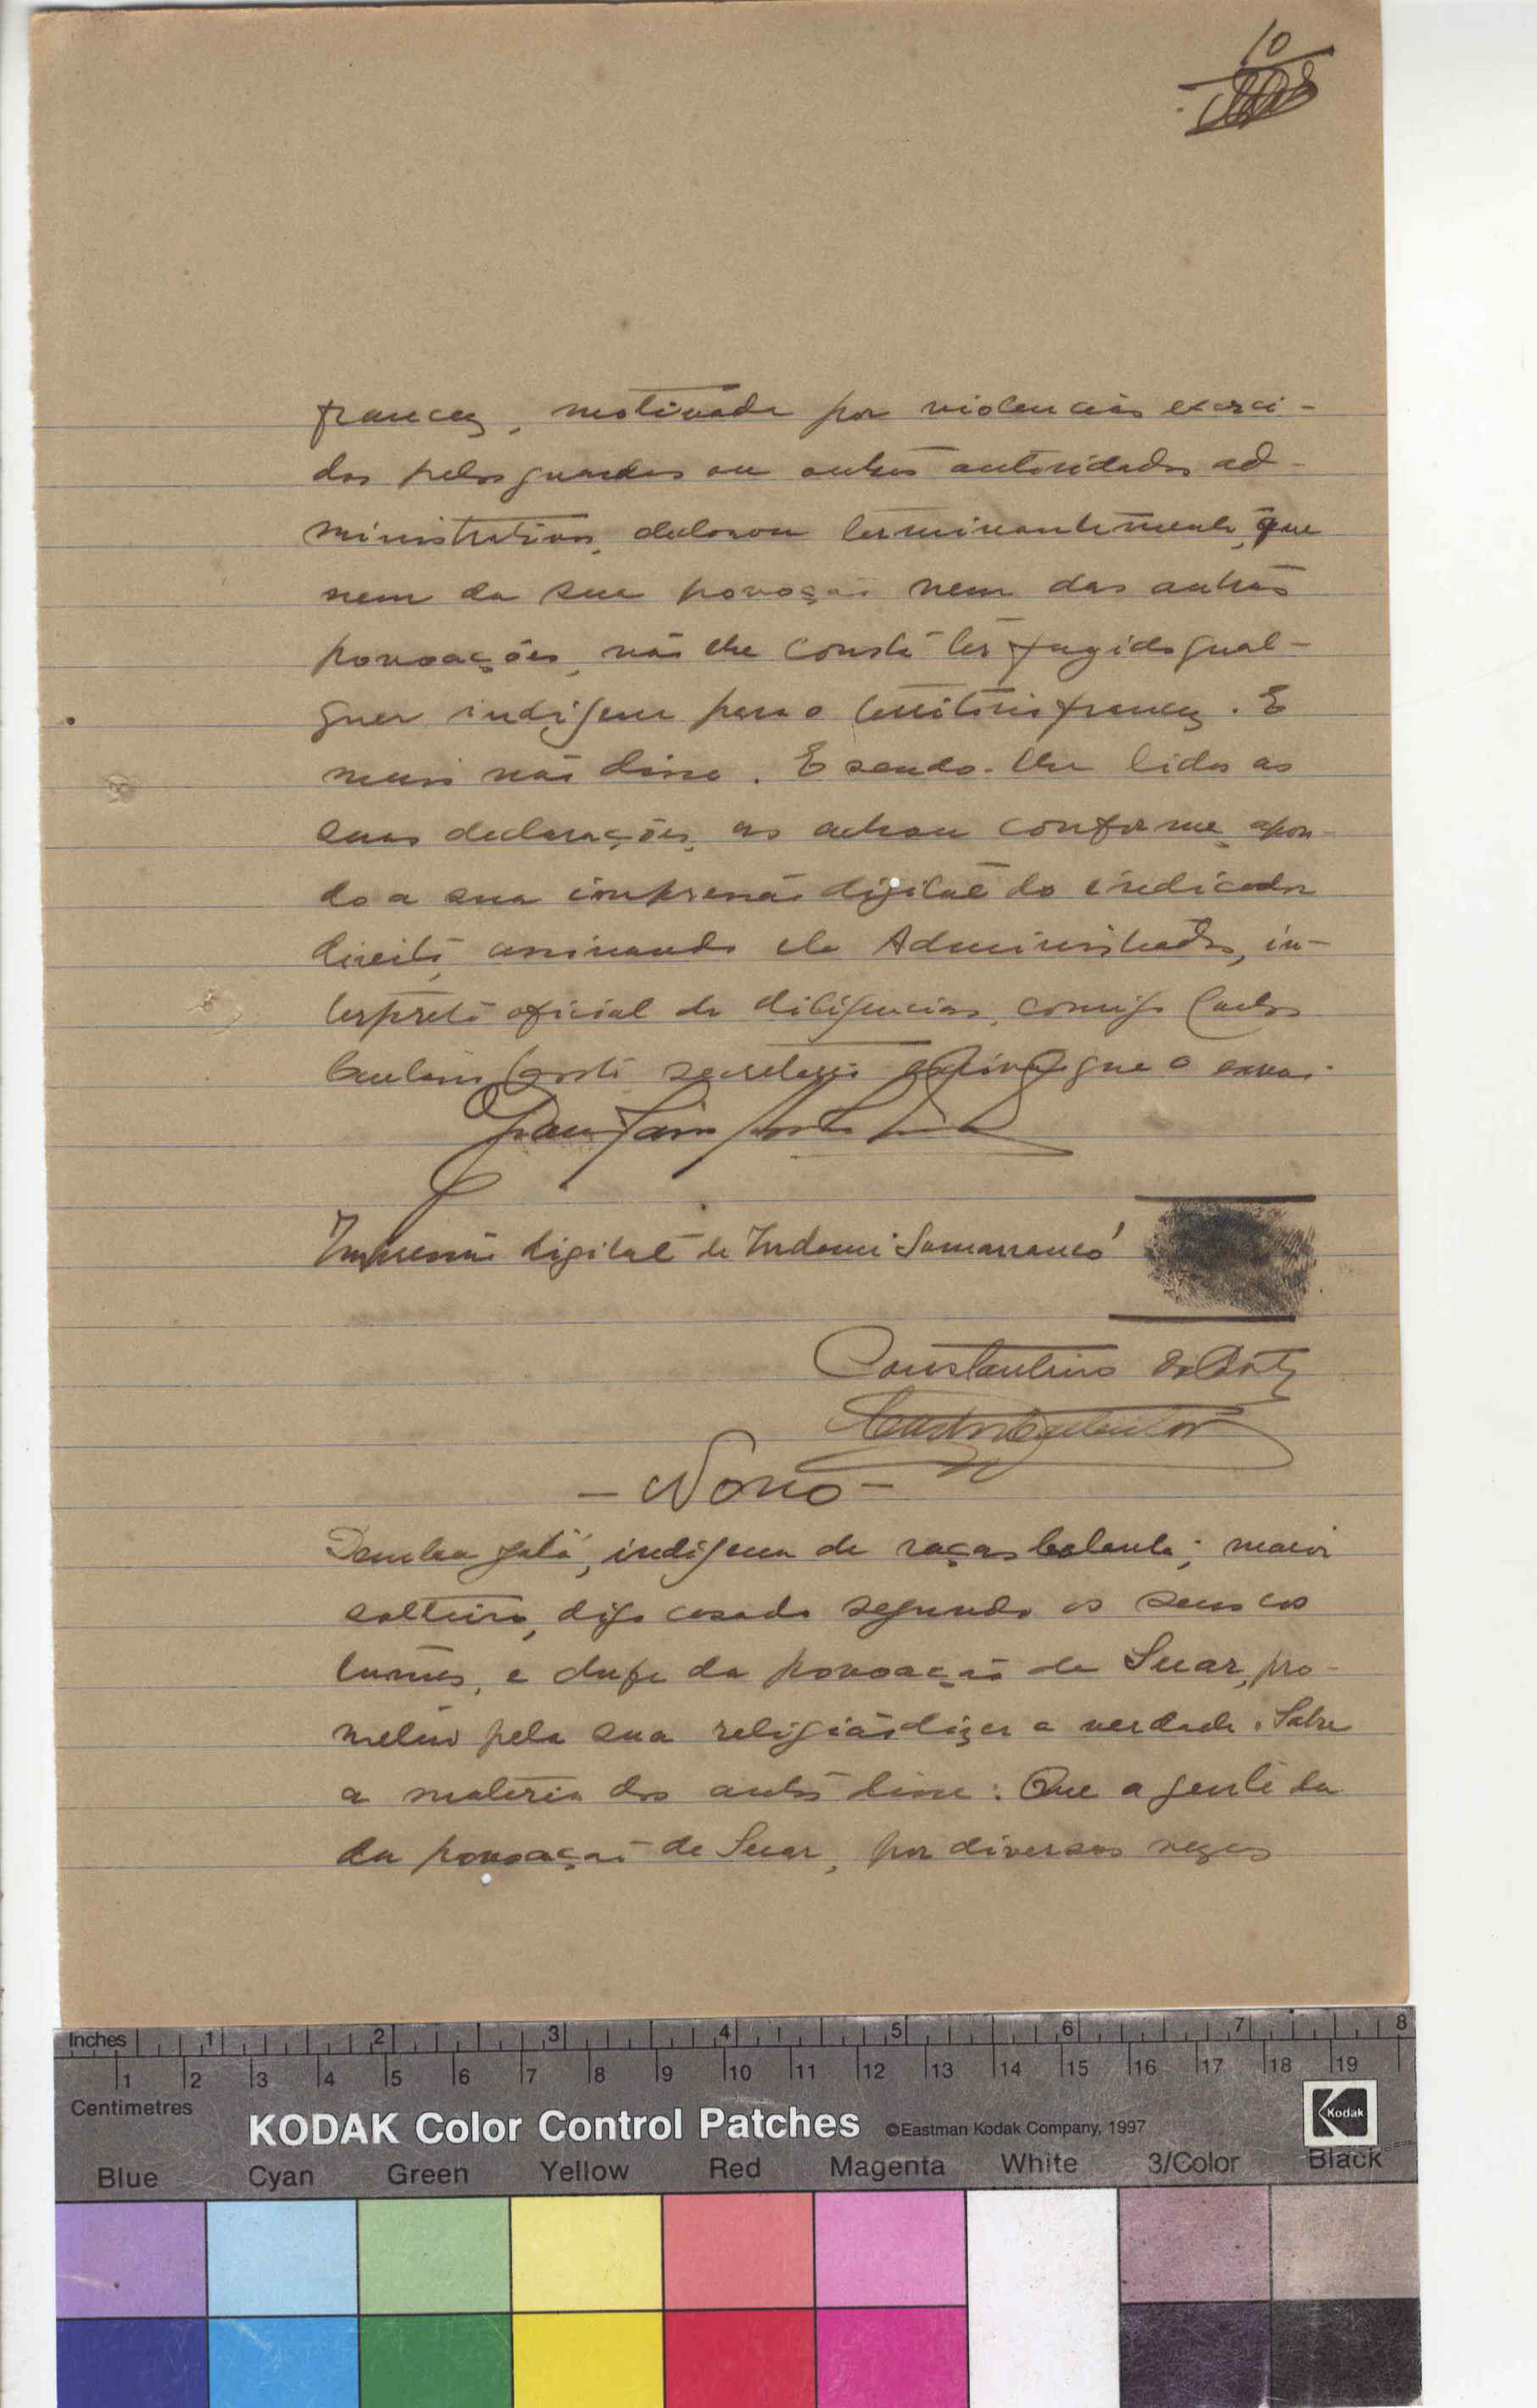 10
francez, motivada por violencias exerci-
das pelos guardas ou outras autoridades ad-
ministrativas, declarou terminantemente, que
nem da sua povoação nem das outras
povoações, não lhe consta ter fugido qual-
quer indigena para o territorio francez. E
mais não disse. E sendo-lhe lidas as
suas declarações, as achou conforme, apon-
do a sua impressão digital do indicador
direito, assinando ele Administrador, in-
terprete oficial de diligencias, comigo Carlos
Costa secretario que o
Impressão digital de Indami Samarancó
Constantino
- Nono -
Demba Jatá, indigena de raças balanta; maior
solteiro, digo casado segundo os seus cos
tumes, e chefe da povoação de Suar, pro-
meteu pela sua religião dizer a verdade. Sobre
a materia dos autos disse: Que a gente da
da povoação de Suar, por diversas vezes
Inches 1 2 3 4 5 6 7 8
1 2 3 4 5 6 7 8 9 10 11 12 13 14 15 16 17 18 19
Centimetres
KODAK Color Control Patches ©Eastman Kodak Company, 1997 Kodak
Blue Cyan Green Yellow Red Magenta White 3/Color Black